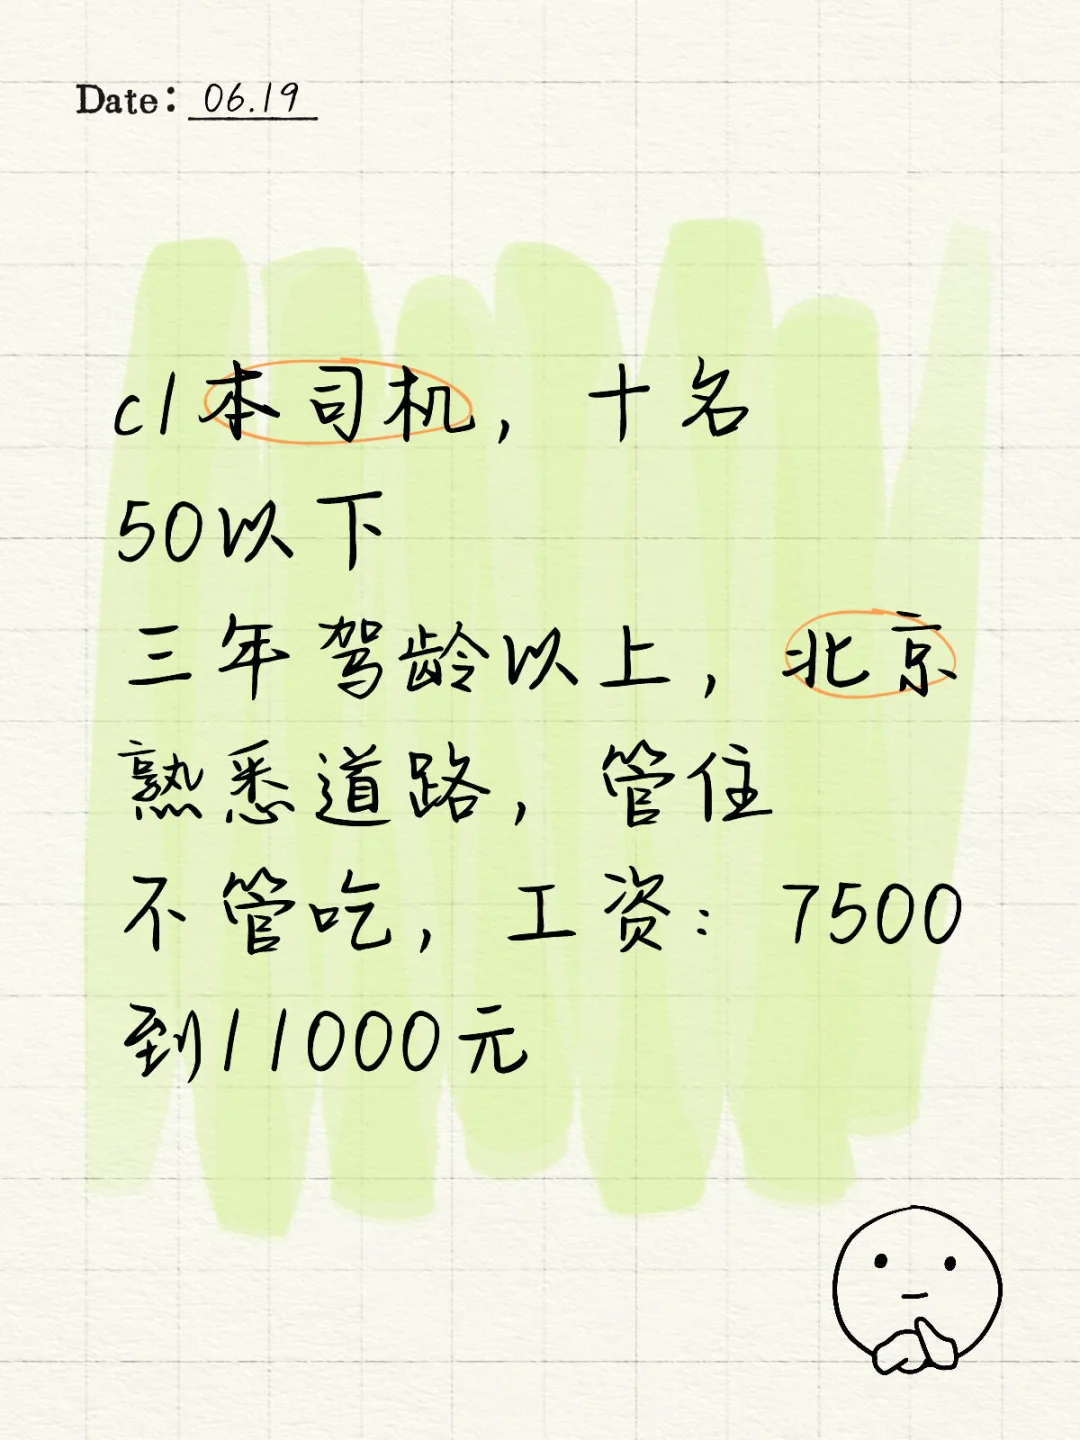 Date: 06.19
c1本司机，十名
50以下
三年驾龄以上，北京
熟悉道路，管住
不管吃，工资：7500
到11000元